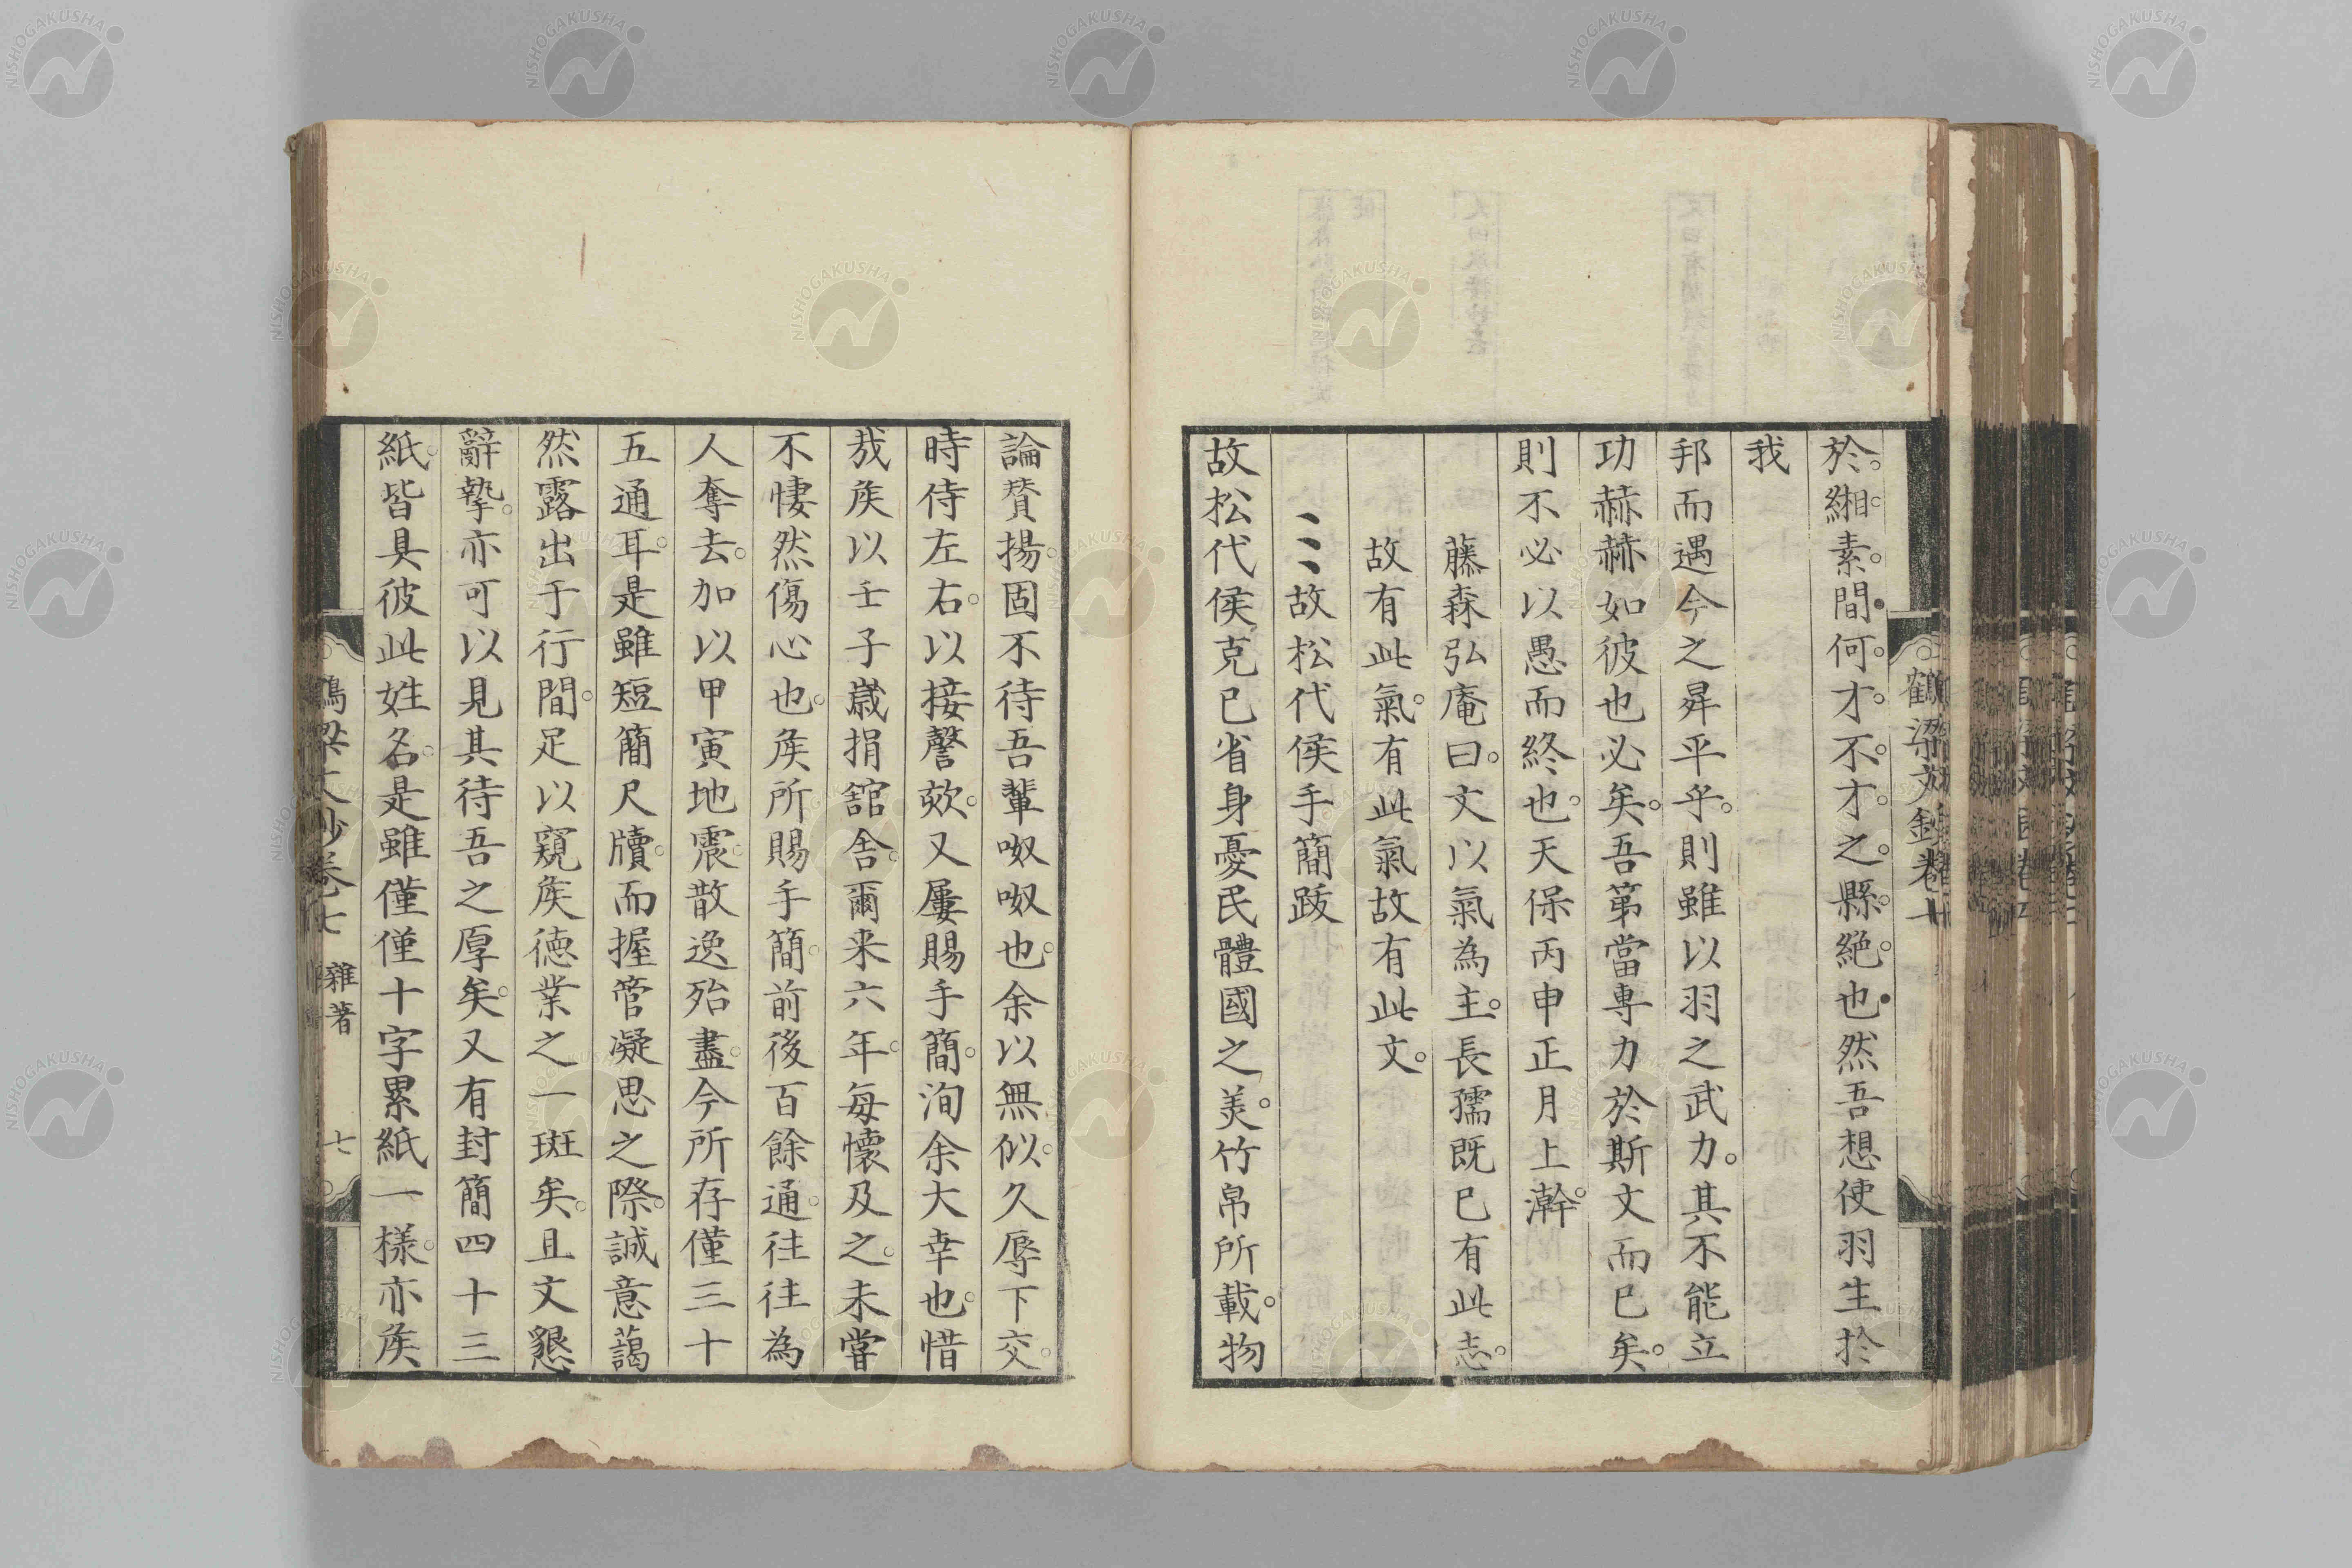 於緗素間何才不才之縣絶也然吾想使羽生於
我
邦而遇今之昇平乎則雖以羽之武力其不能立
功赫赫如彼也必矣吾第當専力於斯文而已矣
則不必以愚而終也天保丙申正月上澣
藤森弘庵曰文以氣為主長孺既已有此志
故有此氣有此氣故有此文
故松代侯手簡跋
故松代侯克已省身憂民體國之美竹帛所載物
論賛揚固不待吾輩呶呶也余以無似久辱下交
時侍左右以接謦欬又屢賜手簡洵余大幸也惜
哉矦以壬子歳捐舘舍爾来六年毎懷及之未甞
不悽然傷心也矦所賜手簡前後百餘通徃徃為
人奪去加以甲寅地震散逸殆盡今所存僅三十
五通耳是雖短簡尺牘而握管凝思之際誠意藹
然露出于行間足以窺矦徳業之一斑矣且文懇
辭摯亦可以見其待吾之厚矣又有封簡四十三
紙皆具彼此姓名是雖僅僅十字累紙一樣亦矦
雜著
七
鶴梁文鈔卷
NISHOGAKUSHA